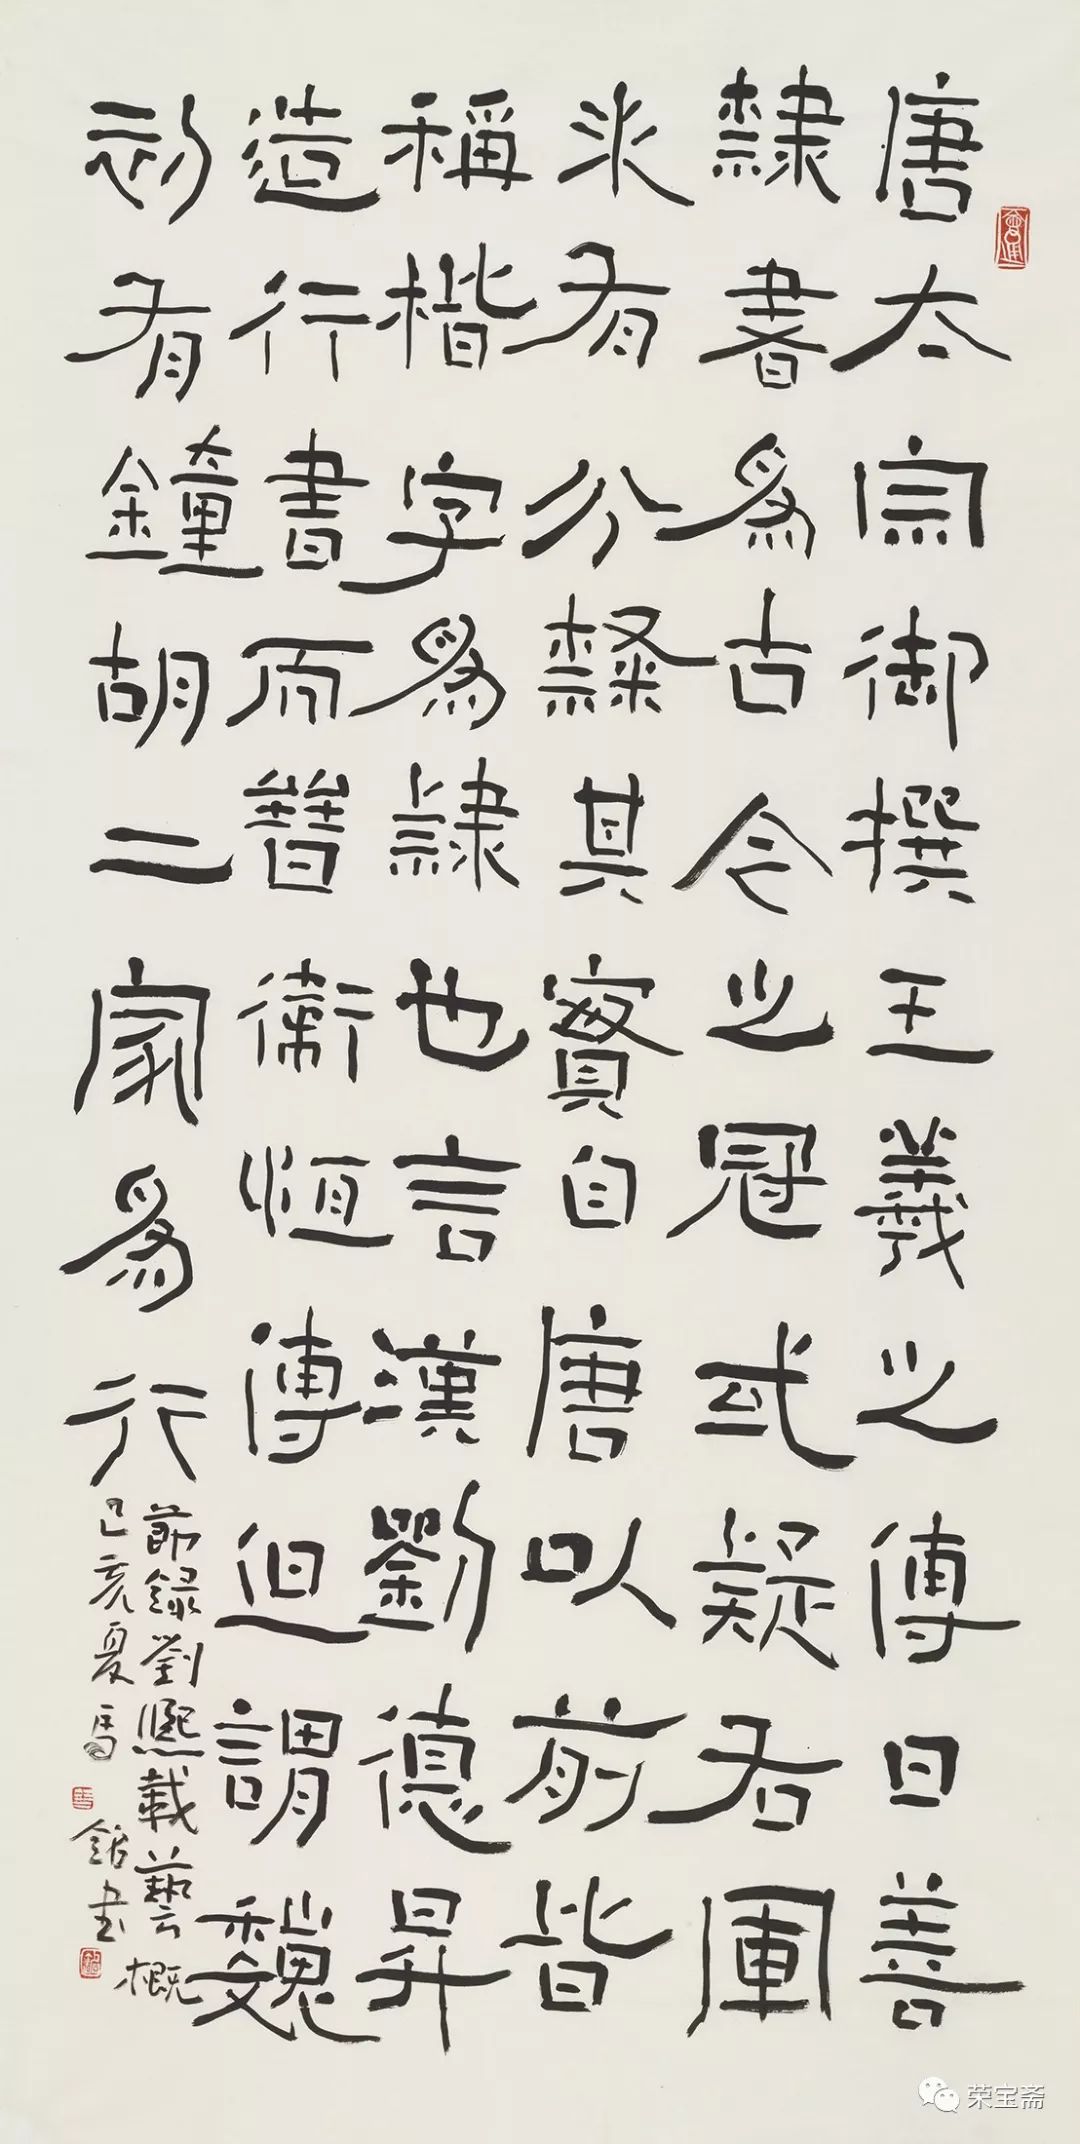 唐太宗御撰王羲之傳曰善
隸書爲古今之冠或疑右軍
未有分隸其實自唐以前皆
稱楷字爲隸也言漢劉德昇
造行書而晉衛恒傳但謂魏
初有鐘胡二家爲行
節錄劉熙載藝概
己亥夏馬書
荣宝斋